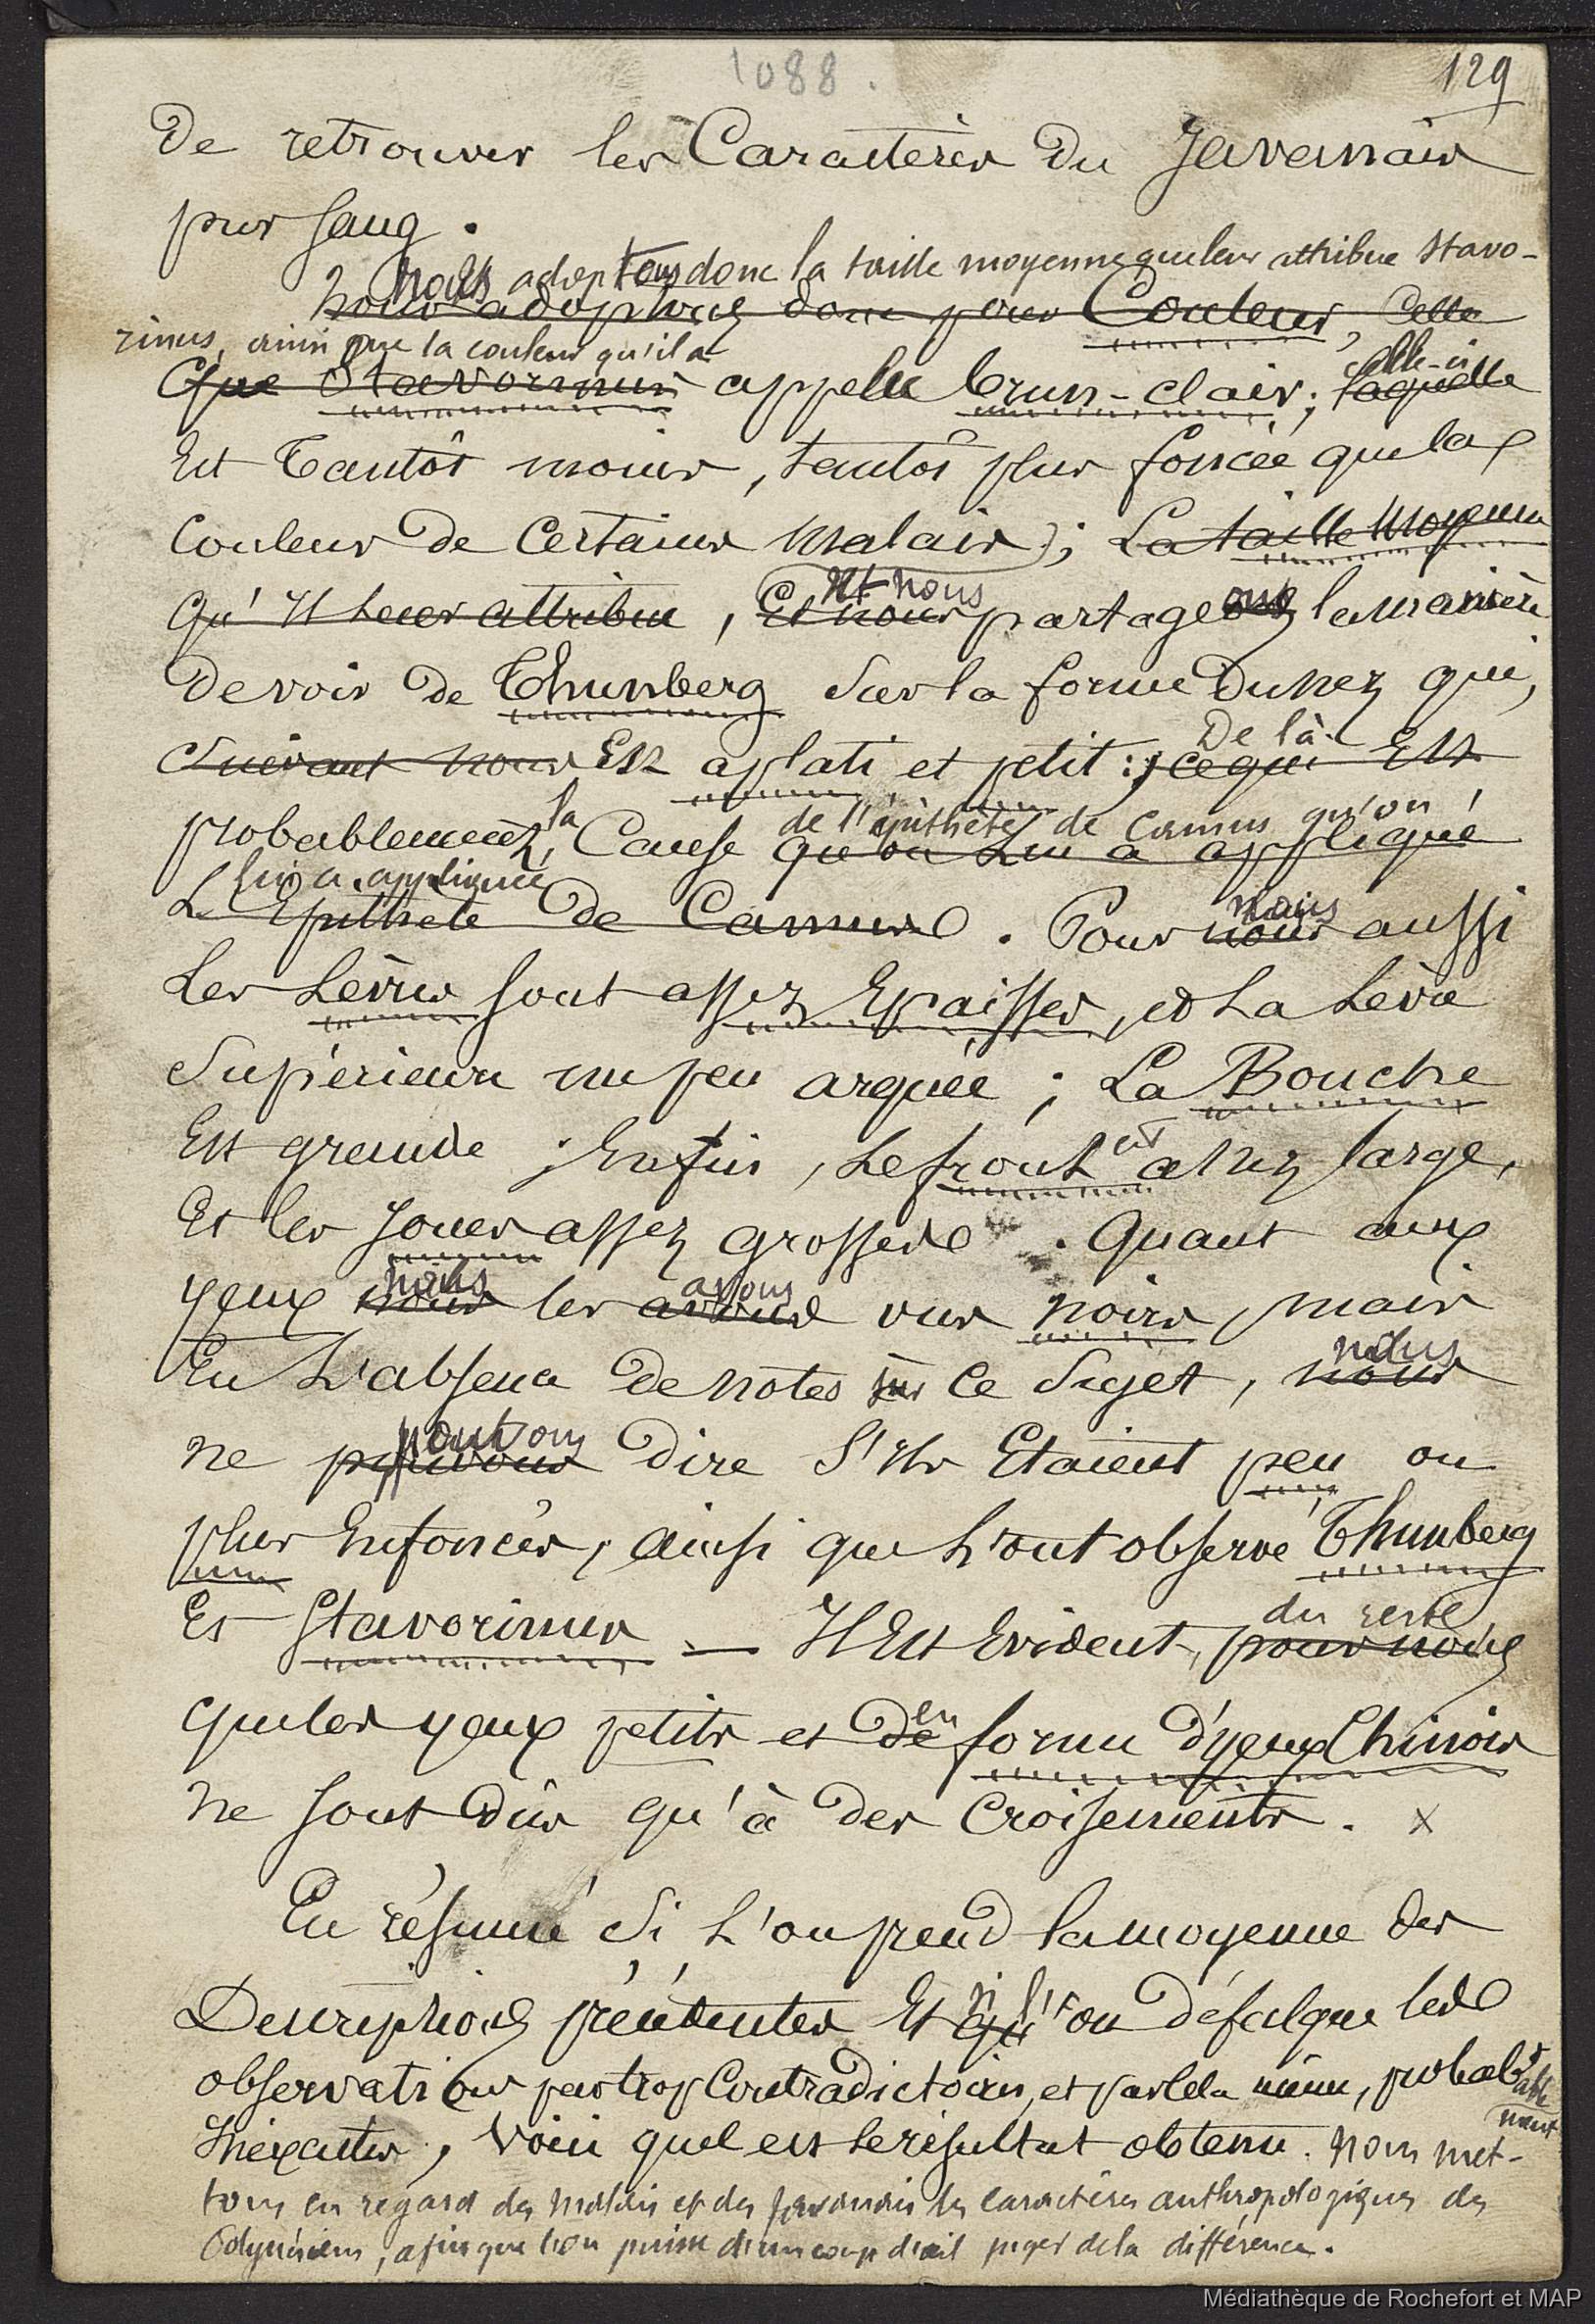 1088.
129
De retrouver les Caractères du Javanais
pur sang.
nous adoptons donc la taille moyenne que leur attribue Stavo-
nous adoptons donc pour Couleur, Celle
rinus, ainsi que la couleur qu'il a
Que Stavorinus appelle brun-clair; laquelle
celle-ci
Est tantôt moins, tantôt plus foncée que la
Couleur de Certains Malais); La taille moyenne
Qu'Il Leur attribue, Et nous partageons la manière
Et nous
De voir de Thunberg Sur la forme Du nez qui,
Suivant nous Est aplati et petit: ; ce qui Est
De là
probablement, la Cause qu'on Lui a appliqué
de l'épithète de Camus qu'on
lui a appliquée
L'Epithète de Camus. Pour nous aussi
nous
Les Lèvres sont assez Epaisses, et La Lèvre
Supérieure un peu arquée; La Bouche
Est grande; Enfin, Le front est assez large,
Et les Joues assez grosses. Quant aux
yeux nous les avons vus noirs, mais
nous
avons
En L'absence De notes sur Ce Sujet, nous
nous
ne pouvons dire S'Ils Etaient peu ou
pouvons
plus Enfoncés, ainsi que L'ont observé Thunberg
Et Stavorinus — Il Est Evident, pour nous
du reste
que les yeux petits et de forme d'yeux Chinois
en
ne sont Dûs qu'à Des Croisements. x
En résumé Si L'on prend la moyenne des
Descriptions précédentes Et qu'on défalque les
si l'
observations par trop Contradictoires, et par cela même, probable
ment
Inexactes, voici quel est le résultat obtenu. nous met-
tons en regard des Malais et des javanais les caractères anthropologiques des
Polynésiens, afin que l'on puisse d'un coup d'œil juger de la différence.
Médiathèque de Rochefort et MAP